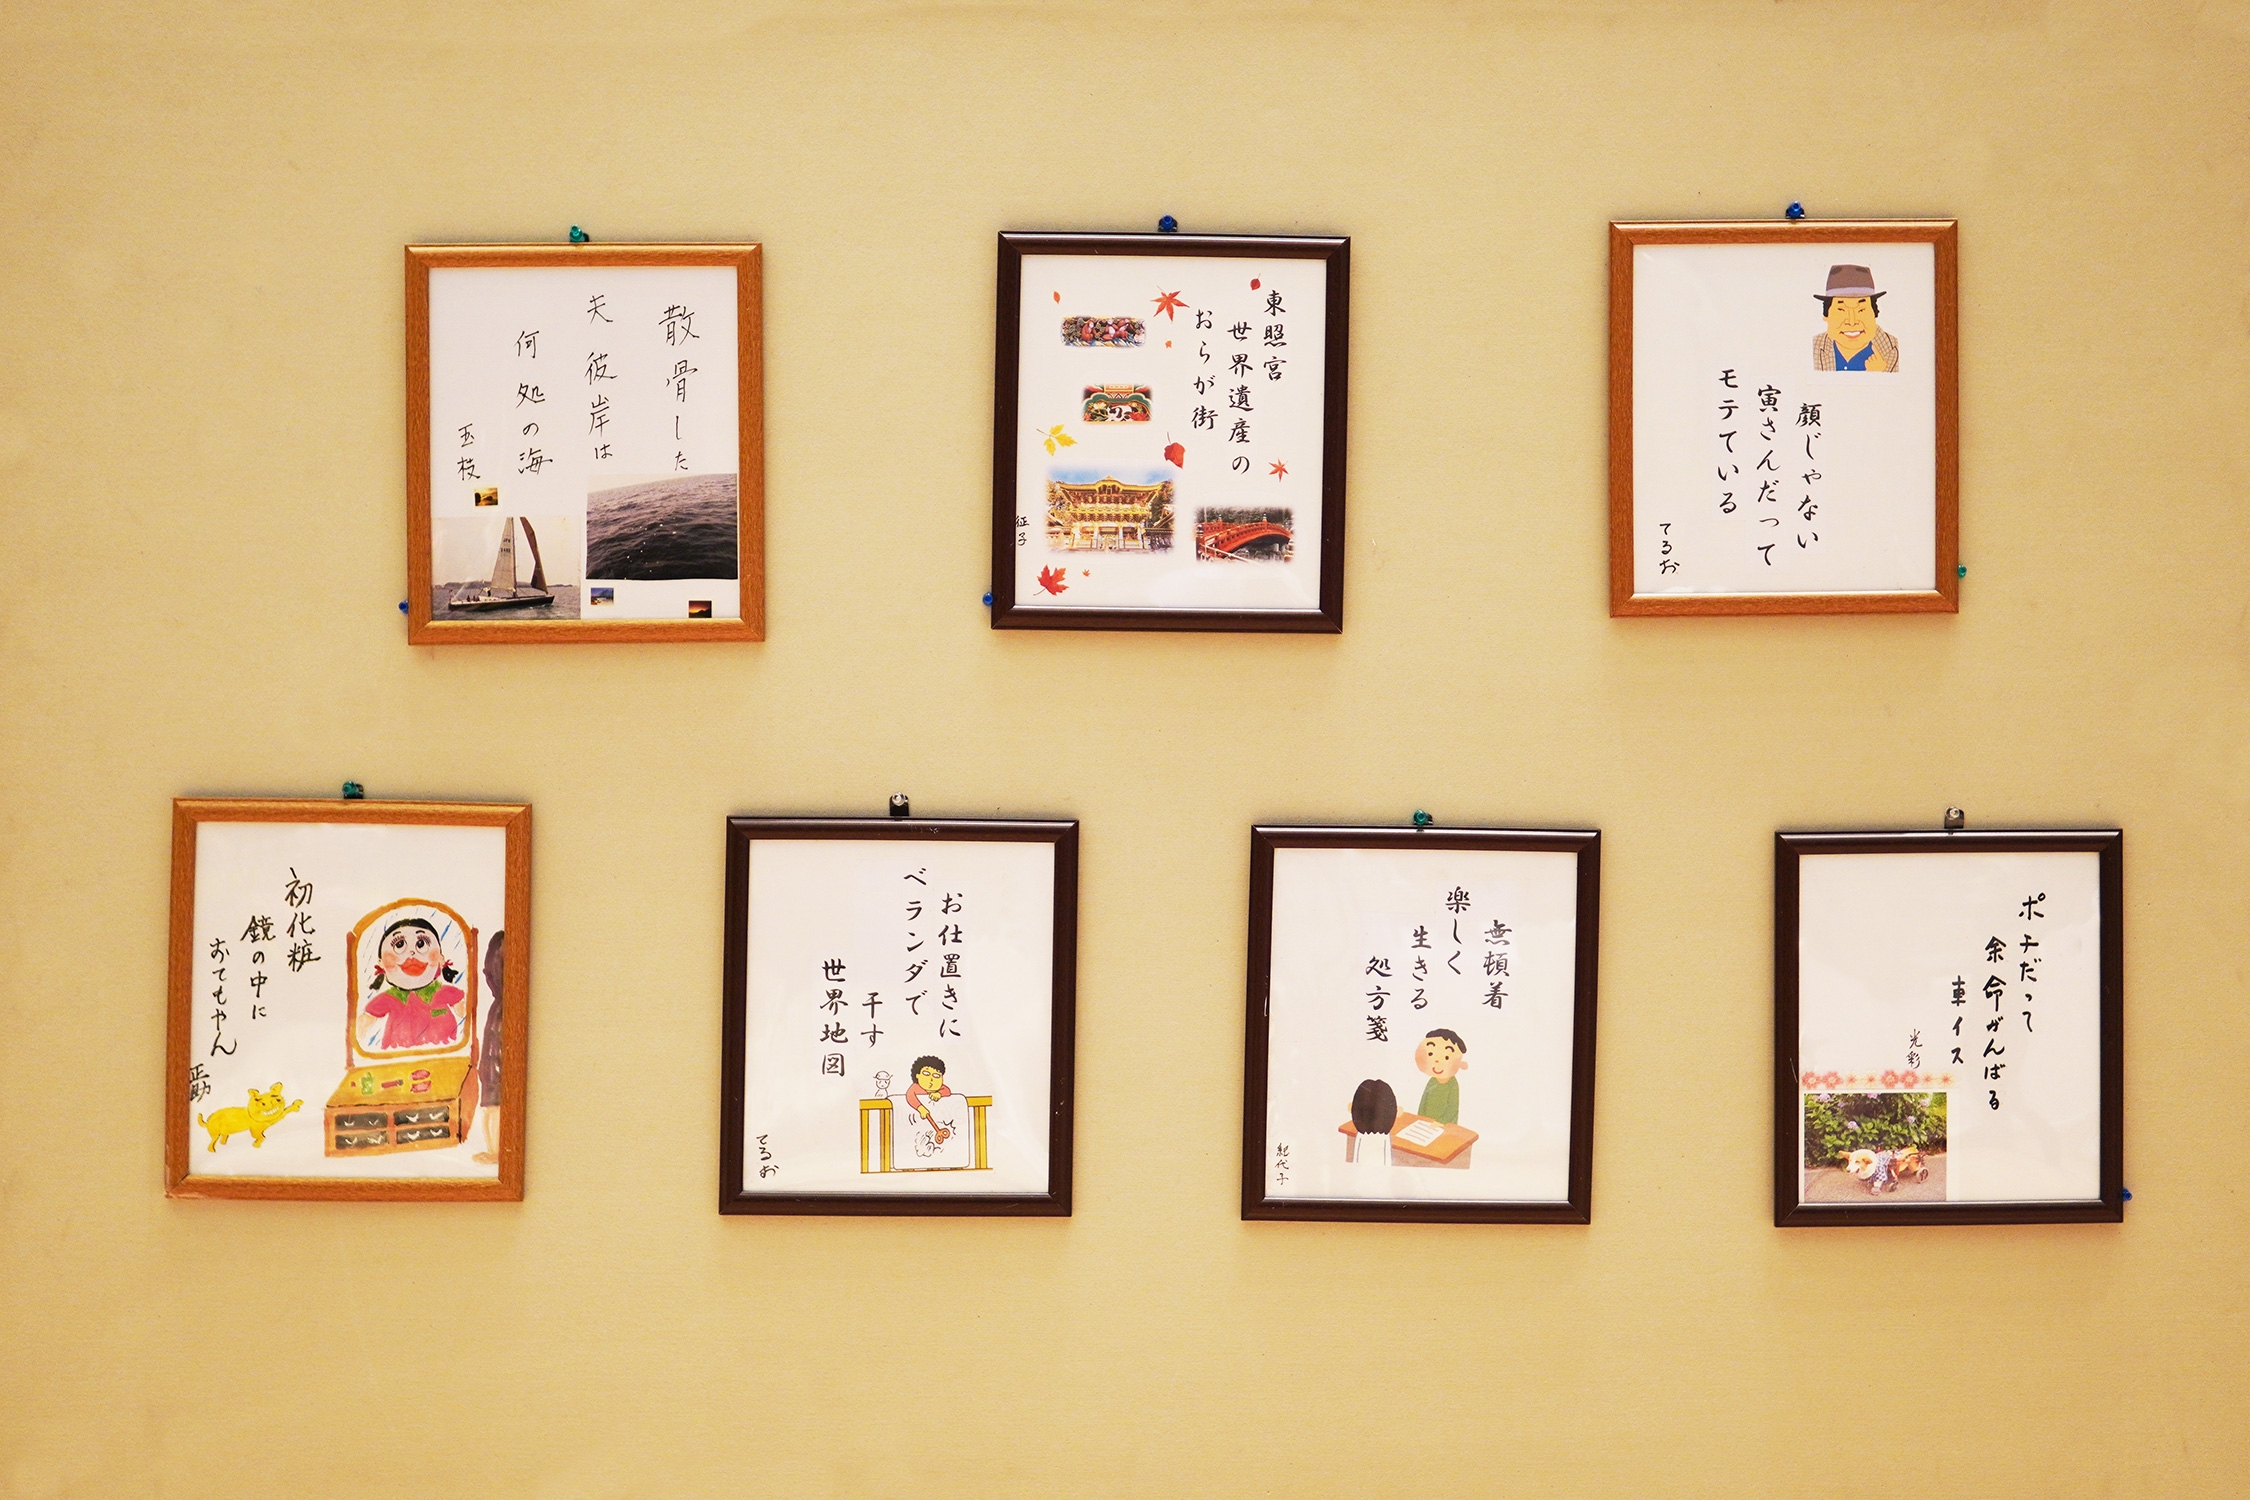 散骨した
夫彼岸は
何処の海
玉枝
東照宮
世界遺産の
おらが街
征子
顔じゃない
寅さんだって
モテている
てるお
初化粧
鏡の中に
おてもやん
正助
お仕置きに
ベランダで
干す
世界地図
てるお
無頓着
楽しく
生きる
処方箋
紀代子
ポチだって
余命がんばる
車イス
光彩